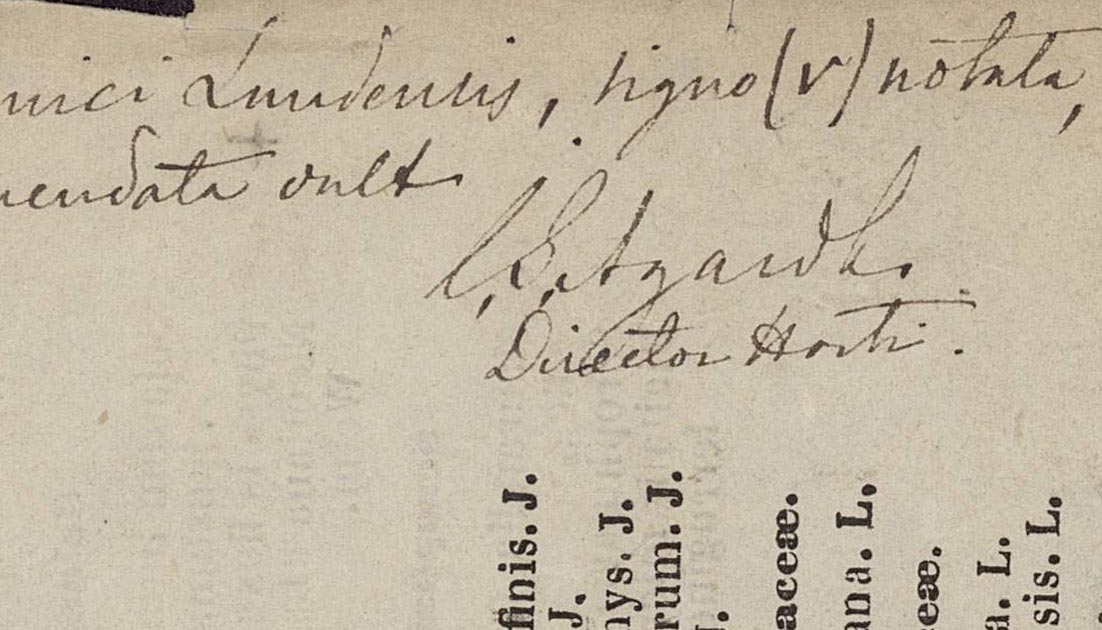 nici Lundensis, signo (v) nōtata,
mendata vult
C. A. Agardh.
Director Horti.
finis. J.
J.
nys. J.
rum. J.
J.
aceæ.
ana. L.
eæ.
a. L.
sis. L.